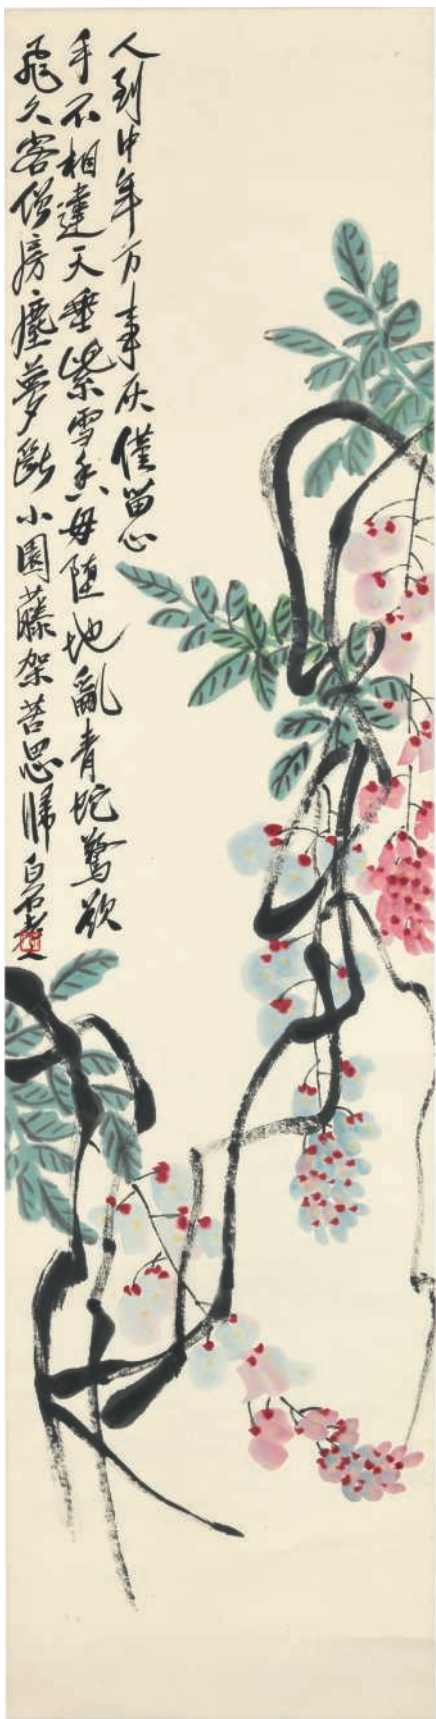 人到中年万事灰僅留心
手不相違天垂紫雪香毋隨地亂青蛇驚欲
飛久客僧房塵夢斷小園藤架苦思歸白石老人